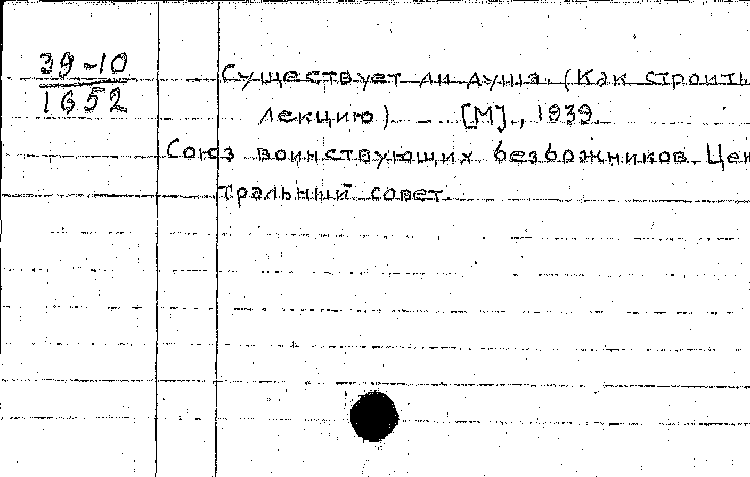 39-10
1652
Существует ли душа. (Как строить
лекцию) — [М]., 1939.
Союз воинствующих безбожников. Цен
тральный совет.